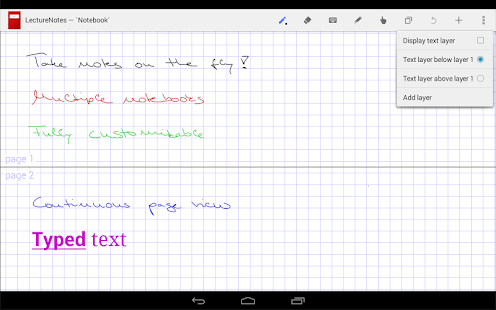 LectureNotes — `Notebook´
Display text layer
Text layer below layer 1
Text layer above layer 1
Add layer
Take notes on the fly!
Multiple notebooks
Fully customizable
page 1
page 2
Continuous page view
Typed text